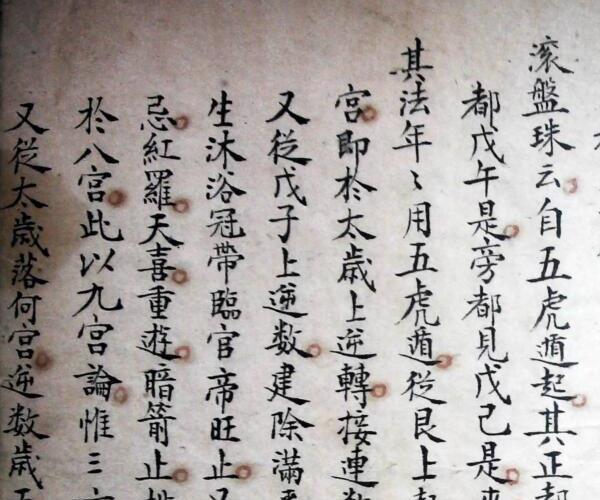 滾盤珠云自五虎遁起其正都
都戊午是旁都見戊己是
其法年〻用五虎遁從艮上
宮即於太歲上逆轉接連
又從戊子上逆数建除滿
生沐浴冠帶臨官帝旺止
忌紅羅天喜重遊暗箭止
於八宮此以九宮論惟三
又從太歲落何宮逆数歲